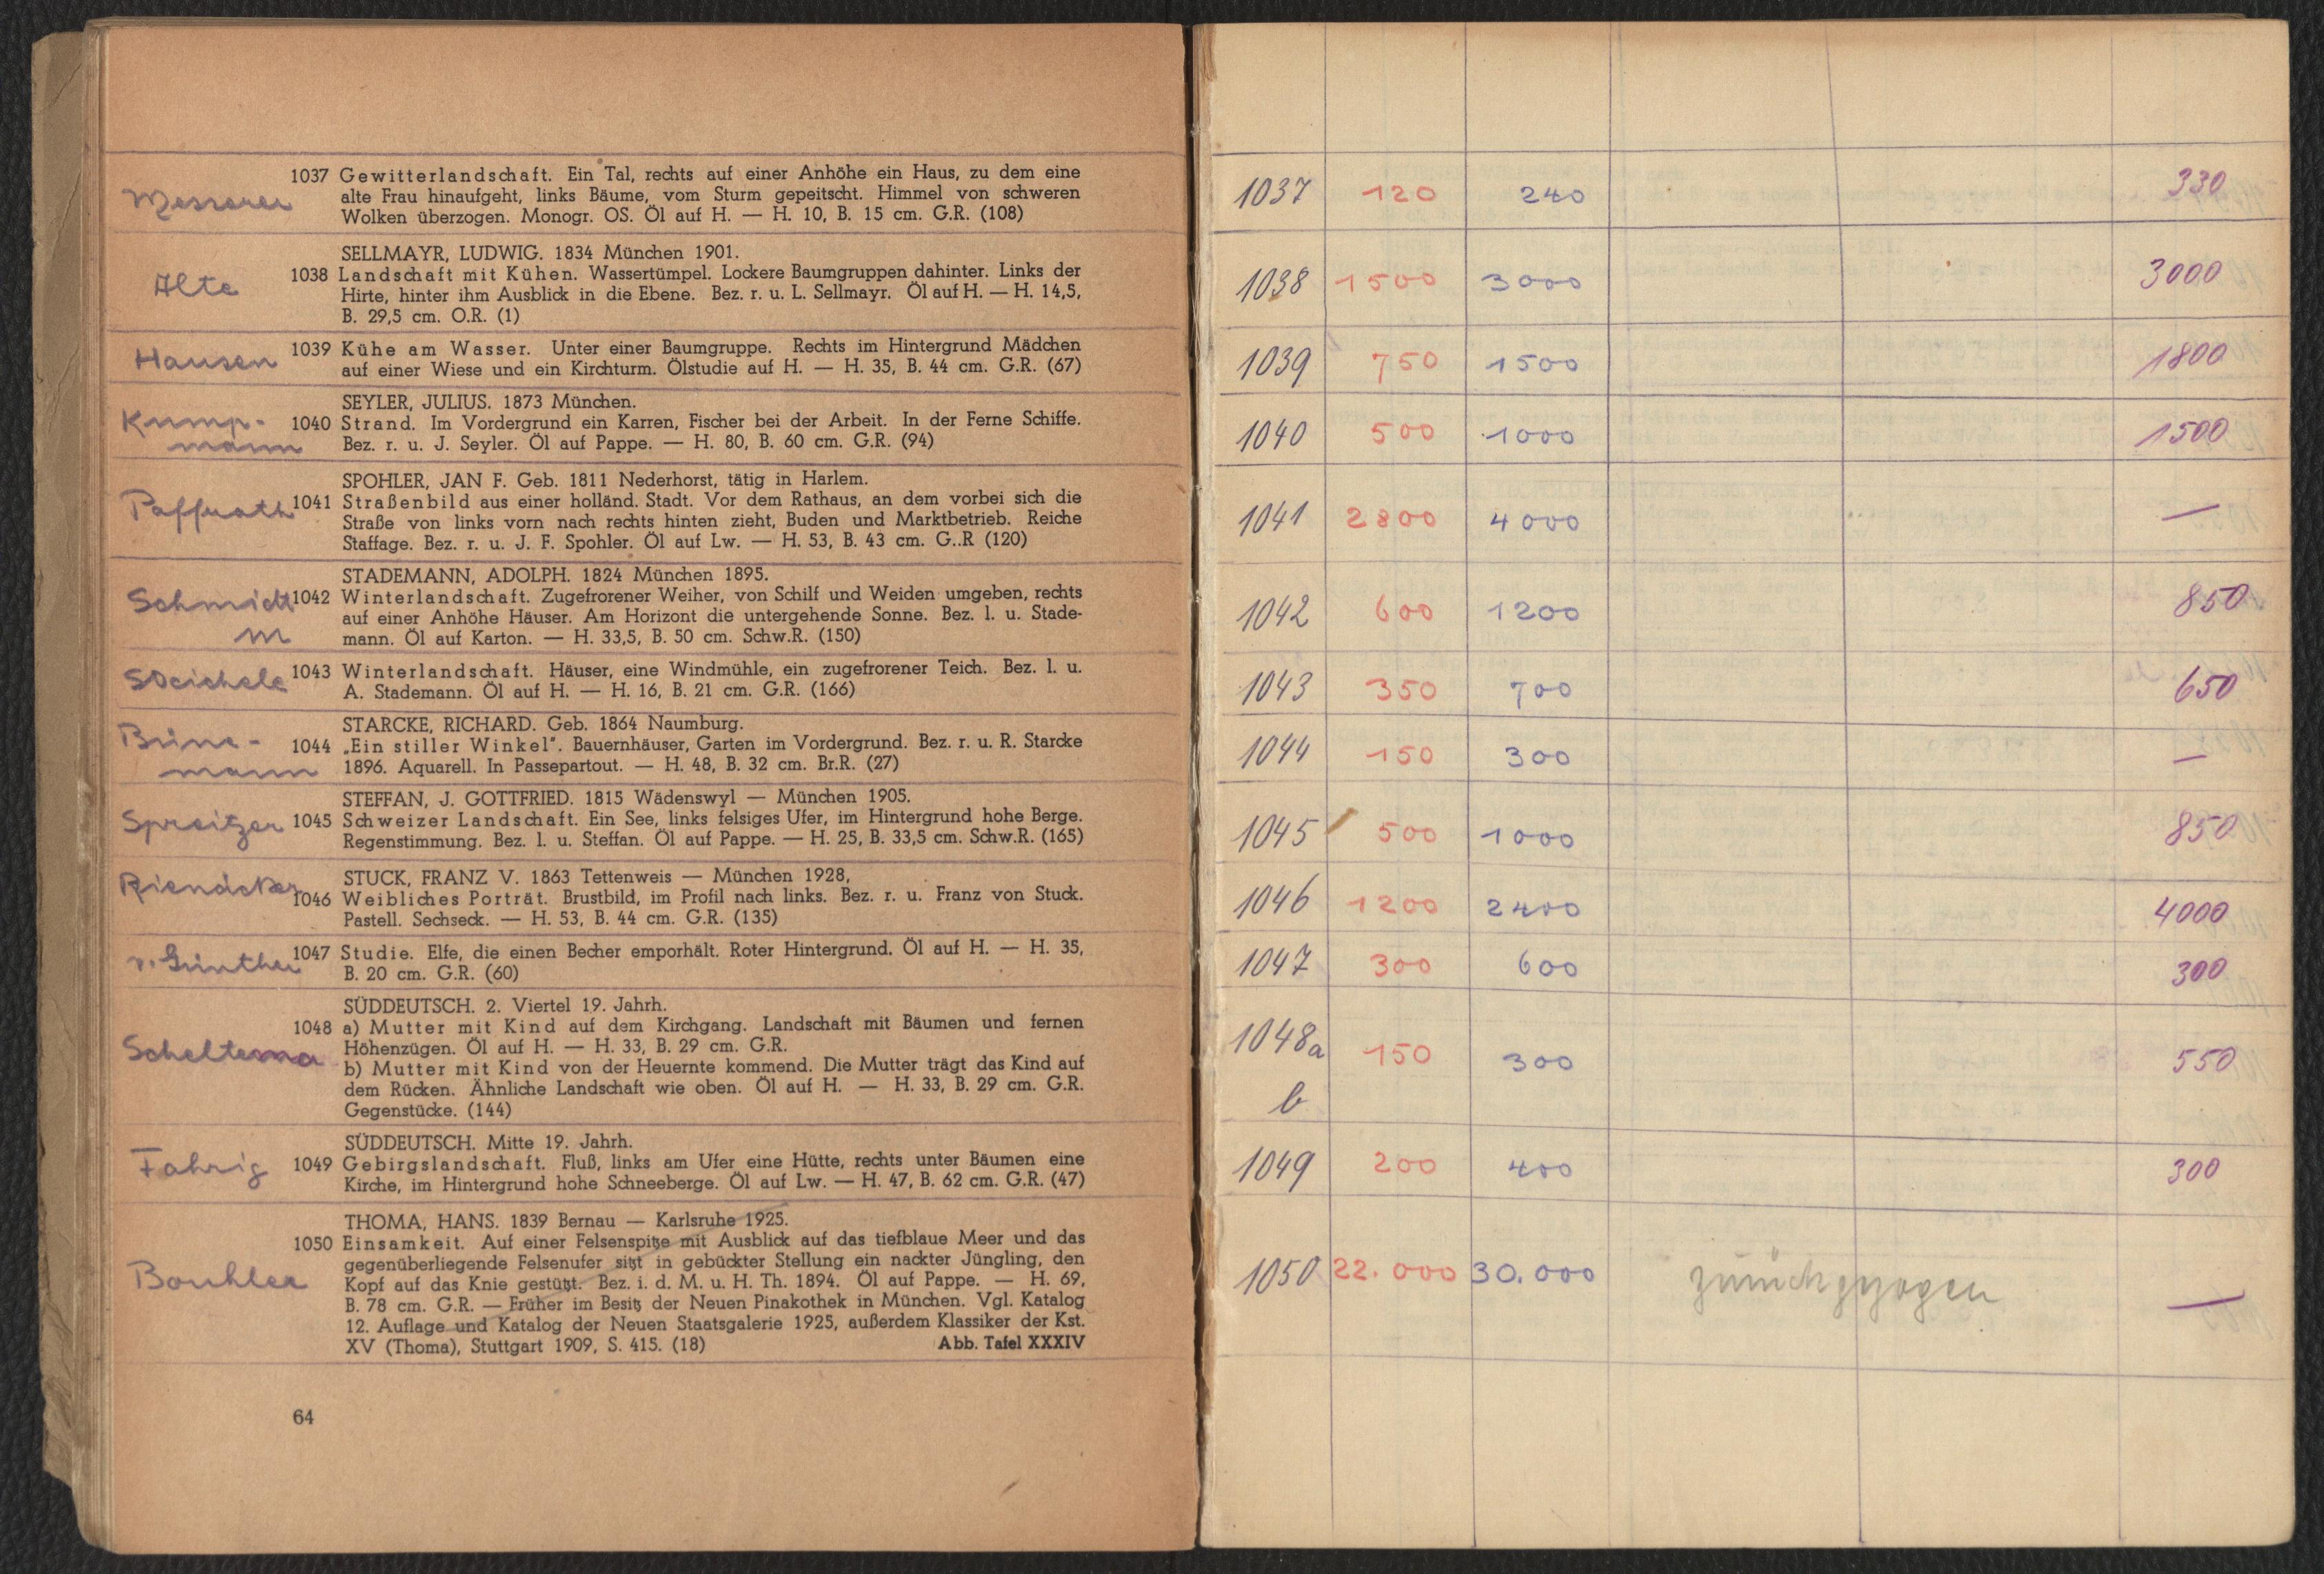 1037 Gewitterlandschaft. Ein Tal, rechts auf einer Anhöhe ein Haus, zu dem eine
alte Frau hinaufgeht, links Bäume, vom Sturm gepeitscht. Himmel von schweren
Wolken überzogen. Monogr. OS. Öl auf H. — H. 10, B. 15 cm. G.R. (108)
Messerer
SELLMAYR, LUDWIG. 1834 München 1901.
1038 Landschaft mit Kühen. Wassertümpel. Lockere Baumgruppen dahinter. Links der
Alte
Hirte, hinter ihm Ausblick in die Ebene. Bez. r. u. L. Sellmayr. Öl auf H. — H. 14,5,
B. 29,5 cm. O.R. (1)
1039 Kühe am Wasser. Unter einer Baumgruppe. Rechts im Hintergrund Mädchen
Hausen
auf einer Wiese und ein Kirchturm. Ölstudie auf H. — H. 35, B. 44 cm. G.R. (67)
SEYLER, JULIUS. 1873 München.
Kump-
1040 Strand. Im Vordergrund ein Karren, Fischer bei der Arbeit. In der Ferne Schiffe.
mann
Bez. r. u. J. Seyler. Öl auf Pappe. — H. 80, B. 60 cm. G.R. (94)
SPOHLER, JAN F. Geb. 1811 Nederhorst, tätig in Harlem.
Paffrath
1041 Straßenbild aus einer holländ. Stadt. Vor dem Rathaus, an dem vorbei sich die
Straße von links vorn nach rechts hinten zieht, Buden und Marktbetrieb. Reiche
Staffage. Bez. r. u. J. F. Spohler. Öl auf Lw. — H. 53, B. 43 cm. G..R (120)
STADEMANN, ADOLPH. 1824 München 1895.
Schmidt
1042 Winterlandschaft. Zugefrorener Weiher, von Schilf und Weiden umgeben, rechts
auf einer Anhöhe Häuser. Am Horizont die untergehende Sonne. Bez. l. u. Stade-
M
mann. Öl auf Karton. — H. 33,5, B. 50 cm. Schw.R. (150)
1043 Winterlandschaft. Häuser, eine Windmühle, ein zugefrorener Teich. Bez. l. u.
A. Stademann. Öl auf H. — H. 16, B. 21 cm. G.R. (166)
STARCKE, RICHARD. Geb. 1864 Naumburg.
Brüne-
1044 „Ein stiller Winkel“. Bauernhäuser, Garten im Vordergrund. Bez. r. u. R. Starcke
mann
1896. Aquarell. In Passepartout. — H. 48, B. 32 cm. Br.R. (27)
STEFFAN, J. GOTTFRIED. 1815 Wädenswyl — München 1905.
Spreitzer
1045 Schweizer Landschaft. Ein See, links felsiges Ufer, im Hintergrund hohe Berge.
Regenstimmung. Bez. l. u. Steffan. Öl auf Pappe. — H. 25, B. 33,5 cm. Schw.R. (165)
STUCK, FRANZ V. 1863 Tettenweis — München 1928,
Rienäcker
1046 Weibliches Porträt. Brustbild, im Profil nach links. Bez. r. u. Franz von Stuck.
Pastell. Sechseck. — H. 53, B. 44 cm. G.R. (135)
v. Günther
1047 Studie. Elfe, die einen Becher emporhält. Roter Hintergrund. Öl auf H. — H. 35,
B. 20 cm. G.R. (60)
SÜDDEUTSCH. 2. Viertel 19. Jahrh.
1048 a) Mutter mit Kind auf dem Kirchgang. Landschaft mit Bäumen und fernen
Scheltema
Höhenzügen. Öl auf H. — H. 33, B. 29 cm. G.R.
b) Mutter mit Kind von der Heuernte kommend. Die Mutter trägt das Kind auf
dem Rücken. Ähnliche Landschaft wie oben. Öl auf H. — H. 33, B. 29 cm. G.R.
Gegenstücke. (144)
SÜDDEUTSCH. Mitte 19. Jahrh.
Fahrig
1049 Gebirgslandschaft. Fluß, links am Ufer eine Hütte, rechts unter Bäumen eine
Kirche, im Hintergrund hohe Schneeberge. Öl auf Lw. — H. 47, B. 62 cm. G.R. (47)
THOMA, HANS. 1839 Bernau — Karlsruhe 1925.
1050 Einsamkeit. Auf einer Felsenspitze mit Ausblick auf das tiefblaue Meer und das
gegenüberliegende Felsenufer sitzt in gebückter Stellung ein nackter Jüngling, den
Bouhler
Kopf auf das Knie gestützt. Bez. i. d. M. u. H. Th. 1894. Öl auf Pappe. — H. 69,
B. 78 cm. G.R. — Früher im Besitz der Neuen Pinakothek in München. Vgl. Katalog
12. Auflage und Katalog der Neuen Staatsgalerie 1925, außerdem Klassiker der Kst.
XV (Thoma), Stuttgart 1909, S. 415. (18) Abb. Tafel XXXIV
64
1037 120 240 330
1038 1500 3000 3000
1039 750 1500 1800
1040 500 1000 1500
1041 2800 4000 —
1042 600 1200 850
1043 350 700 650
1044 150 300 —
1045 500 1000 850
1046 1200 2400 4000
1047 300 600 300
1048a 150 300 550
b
1049 200 400 300
1050 22.000 30.000 zurückgezogen —